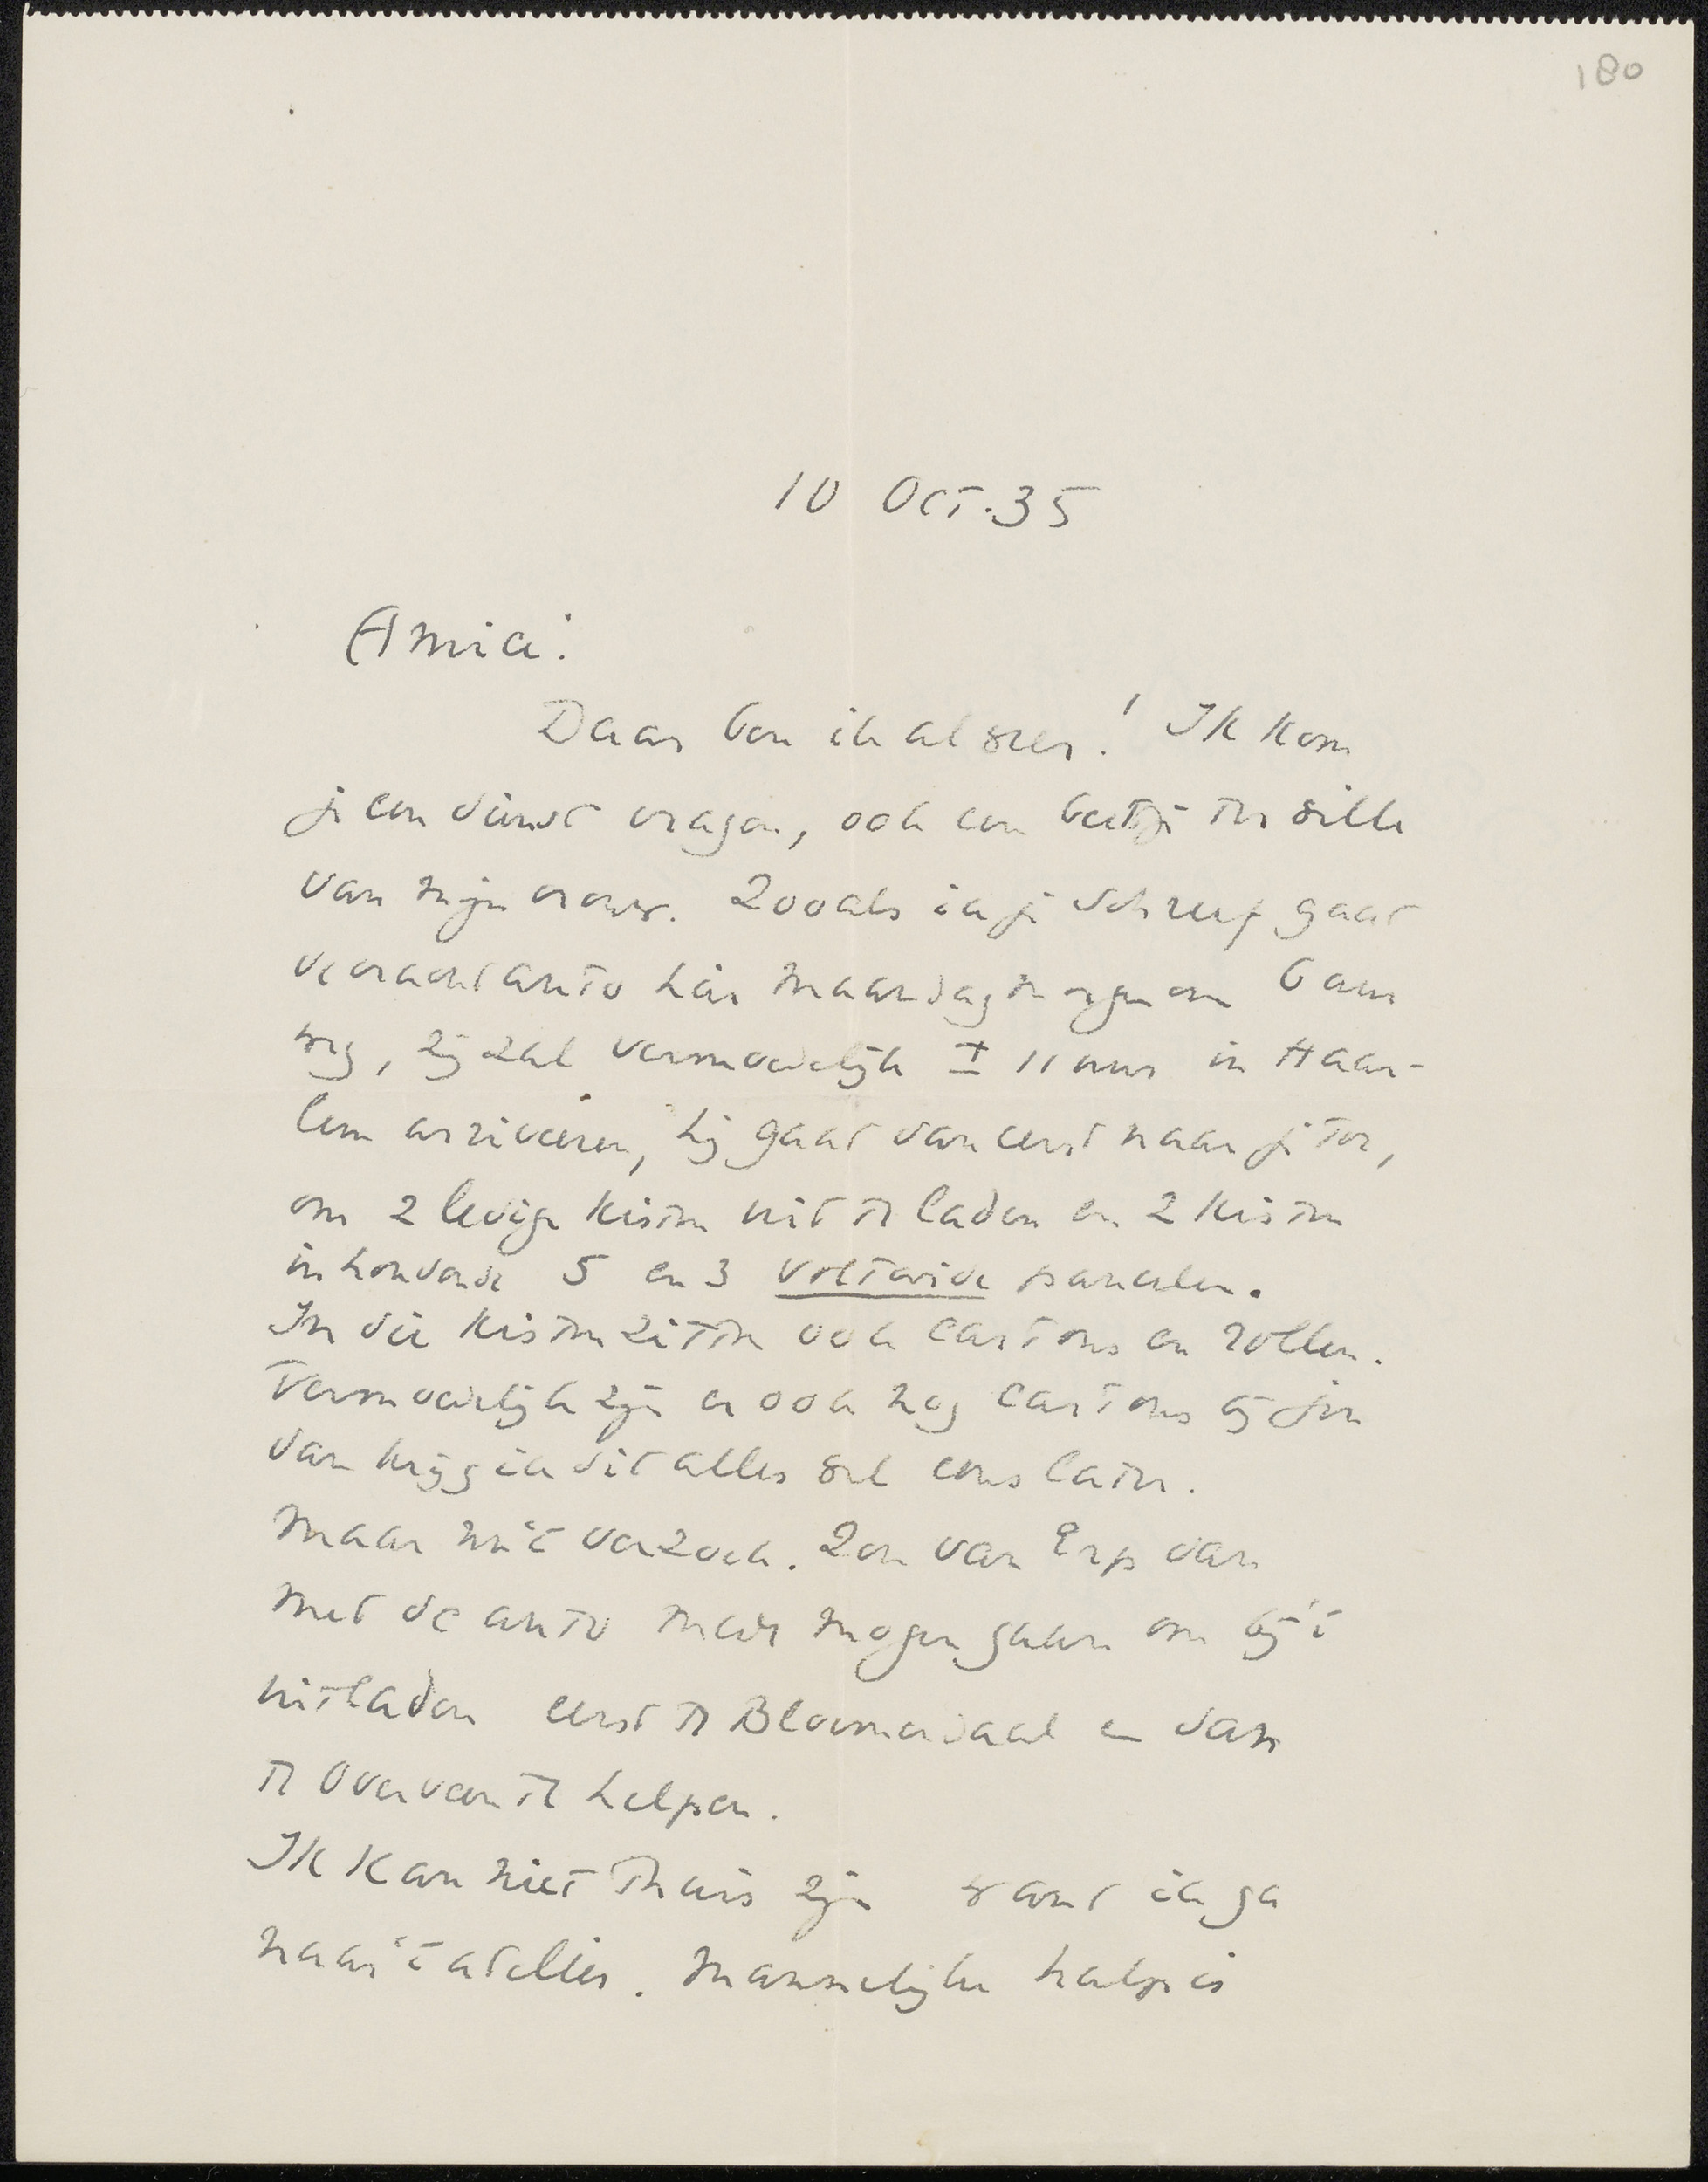 180
10 Oct. 35
Amice!
Daar ben ik al weer! Ik kom
je een dienst vragen, ook een beetje ter wille
van mijn vrouw. Zooals ik je schreef gaat
de vrachtauto hier maandagmorgen om 6 uur
weg, zij zal vermoedelijk ± 11 uur in Haar-
lem arriveeren, hij gaat dan eerst naar je toe,
om 2 ledige kisten uit te laden en 2 kisten
inhoudende 5 en 3 voltooide paneelen.
In die kisten zitten ook cartons en rollen.
Vermoedelijk zijn er ook nog cartons bij
dan krijg ik dit alles wel eens later.
Maar nu 't verzoek. Zou van Erp dan
met de auto mede mogen gaan om bij 't
uitladen eerst te Bloemendaal en dan
te Overveen te helpen.
Ik kan niet thuis zijn want ik ga
naar 't atelier. Mannelijke hulp is